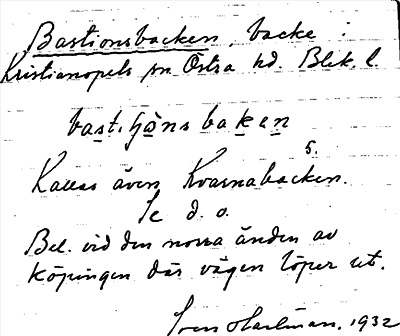 Bastionsbacken, backe i
Kristianopels sn Östra hd. Blek. l.
bast.ʃɷ̀nsbakɛn
Kallas även Kvarnabacken.
5.
Se d. o.
Bel. vid den norra änden av
köpingen där vägen löper ut.
Sven Hartman. 1932